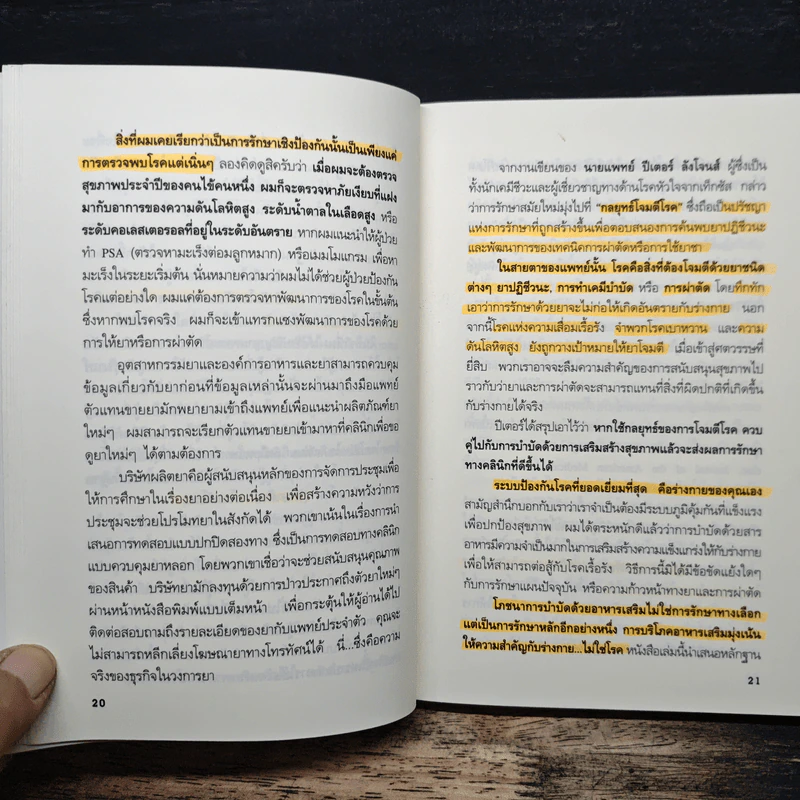 สิ่งที่ผมเคยเรียกว่าเป็นการรักษาเชิงป้องกันนั้นเป็นเพียงแค่
การตรวจพบโรคแต่เนิ่นๆ ลองคิดดูสิครับว่า เมื่อผมจะต้องตรวจ
สุขภาพประจำปีของคนไข้คนหนึ่ง ผมก็จะตรวจหาภัยเงียบที่แฝง
มากับอาการของความดันโลหิตสูง ระดับน้ำตาลในเลือดสูง หรือ
ระดับคอเลสเตอรอลที่อยู่ในระดับอันตราย หากผมแนะนำให้ผู้ป่วย
ทำ PSA (ตรวจหามะเร็งต่อมลูกหมาก) หรือเมมโมแกรม เพื่อหา
มะเร็งในระยะเริ่มต้น นั่นหมายความว่าผมไม่ได้ช่วยผู้ป่วยป้องกัน
โรคแต่อย่างใด ผมแค่ต้องการตรวจหาพัฒนาการของโรคในขั้นต้น
ซึ่งหากพบโรคจริง ผมก็จะเข้าแทรกแซงพัฒนาการของโรคด้วย
การให้ยาหรือการผ่าตัด
อุตสาหกรรมยาและองค์การอาหารและยาสามารถควบคุม
ข้อมูลเกี่ยวกับยาก่อนที่ข้อมูลเหล่านั้นจะผ่านมาถึงมือแพทย์
ตัวแทนขายยามักพยายามเข้าถึงแพทย์เพื่อแนะนำผลิตภัณฑ์ยา
ใหม่ๆ ผมสามารถจะเรียกตัวแทนขายยาเข้ามาหาที่คลินิกเพื่อขอ
ดูยาใหม่ๆ ได้ตามต้องการ
บริษัทผลิตยาคือผู้สนับสนุนหลักของการจัดการประชุมเพื่อ
ให้การศึกษาในเรื่องยาอย่างต่อเนื่อง เพื่อสร้างความหวังว่าการ
ประชุมจะช่วยโปรโมทยาในสังกัดได้ พวกเขาเน้นในเรื่องการนำ
เสนอการทดสอบแบบปกปิดสองทาง ซึ่งเป็นการทดสอบทางคลินิก
แบบควบคุมยาหลอก โดยพวกเขาเชื่อว่าจะช่วยสนับสนุนคุณภาพ
ของสินค้า บริษัทยามักลงทุนด้วยการป่าวประกาศถึงตัวยาใหม่ๆ
ผ่านหน้าหนังสือพิมพ์แบบเต็มหน้า เพื่อกระตุ้นให้ผู้อ่านได้ไป
ติดต่อสอบถามถึงรายละเอียดของยากับแพทย์ประจำตัว คุณจะ
ไม่สามารถหลีกเลี่ยงโฆษณายาทางโทรทัศน์ได้ นี่...ซึ่งคือความ
จริงของธุรกิจในวงการยา
20
จากงานเขียนของ นายแพทย์ ปีเตอร์ ลังโจนส์ ผู้ซึ่งเป็น
ทั้งนักเคมีชีวะและผู้เชี่ยวชาญทางด้านโรคหัวใจจากเท็กซัส กล่าว
ว่าการรักษาสมัยใหม่มุ่งไปที่ “กลยุทธ์โจมตีโรค” ซึ่งถือเป็นปรัชญา
แห่งการรักษาที่ถูกสร้างขึ้นเพื่อตอบสนองการค้นพบยาปฏิชีวนะ
และพัฒนาการของเทคนิคการผ่าตัดหรือการใช้ยาชา
ในสายตาของแพทย์นั้น โรคคือสิ่งที่ต้องโจมตีด้วยยาชนิด
ต่างๆ ยาปฏิชีวนะ, การทำเคมีบำบัด หรือ การผ่าตัด โดยทึกทัก
เอาว่าการรักษาด้วยยาจะไม่ก่อให้เกิดอันตรายกับร่างกาย นอก
จากนี้โรคแห่งความเสื่อมเรื้อรัง จำพวกโรคเบาหวาน และความ
ดันโลหิตสูง ยังถูกวางเป้าหมายให้ยาโจมตี เมื่อเข้าสู่ศตวรรษที่
ยี่สิบ พวกเราอาจจะลืมความสำคัญของการสนับสนุนสุขภาพไป
ราวกับว่ายาและการผ่าตัดจะสามารถแทนที่สิ่งที่ผิดปกติที่เกิดขึ้น
กับร่างกายได้จริง
ปีเตอร์ได้สรุปเอาไว้ว่า หากใช้กลยุทธ์ของการโจมตีโรค ควบ
คู่ไปกับการบำบัดด้วยการเสริมสร้างสุขภาพแล้วจะส่งผลการรักษา
ทางคลินิกที่ดีขึ้นได้
ระบบป้องกันโรคที่ยอดเยี่ยมที่สุด คือร่างกายของคุณเอง
สามัญสำนึกบอกกับเราว่าเราจำเป็นต้องมีระบบภูมิคุ้มกันที่แข็งแรง
เพื่อปกป้องสุขภาพ ผมได้ตระหนักดีแล้วว่าการบำบัดด้วยสาร
อาหารมีความจำเป็นมากในการเสริมสร้างความแข็งแกร่งให้กับร่างกาย
เพื่อให้สามารถต่อสู้กับโรคเรื้อรัง วิธีการนี้มิได้มีข้อขัดแย้งใดๆ
กับการรักษาแผนปัจจุบัน หรือความก้าวหน้าทางยาและการผ่าตัด
โภชนาการบำบัดด้วยอาหารเสริมไม่ใช่การรักษาทางเลือก
แต่เป็นการรักษาหลักอีกอย่างหนึ่ง การบริโภคอาหารเสริมมุ่งเน้น
ให้ความสำคัญกับร่างกาย...ไม่ใช่โรค หนังสือเล่มนี้นำเสนอหลักฐาน
21